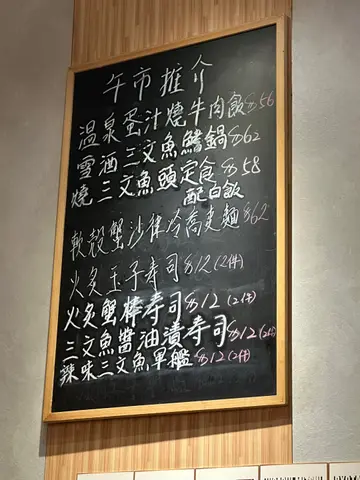 午市推介
溫泉蛋汁燒牛肉飯 $56
雪酒三文魚鱔鍋 $62
燒三文魚頭定食 $58
配白飯
軟殼蟹沙律冷蕎麦麵 $62
火炙玉子寿司 $12 (2件)
火炙蟹棒寿司 $12 (2件)
三文魚醬油漬寿司 $12 (2件)
辣味三文魚軍艦 $12 (2件)